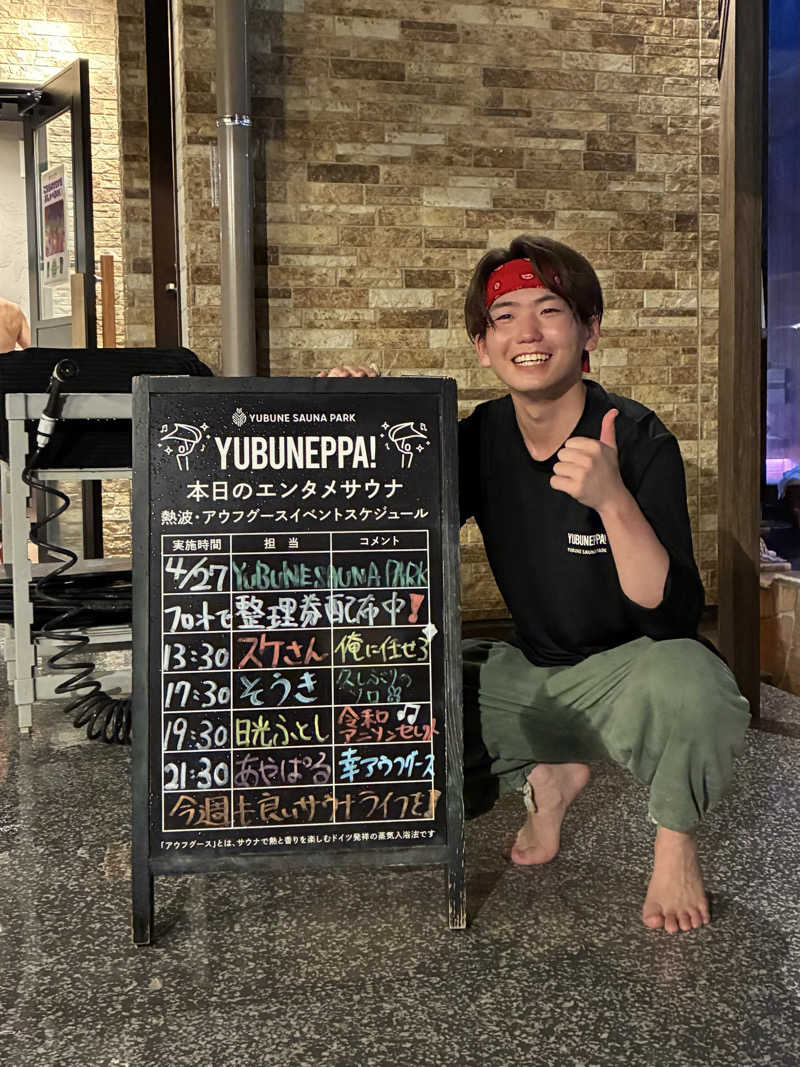 YUBUNE SAUNA PARK
YUBUNEPPA!
本日のエンタメサウナ
熱波・アウフグースイベントスケジュール
実施時間 担当 コメント
4/27 YUBUNE SAUNA PARK
フロントで整理券配布中!
13:30 スケさん 俺に任せろ
17:30 そうき 久しぶりのソロ
19:30 日光ふとし 令和アニソンセレクト
21:30 あやぱる 幸アウフグース
今週も良いサウナライフを!
「アウフグース」とは、サウナで熱と香りを楽しむドイツ発祥の蒸気入浴法です
YUBUNEPPA!
YUBUNE SAUNA PARK